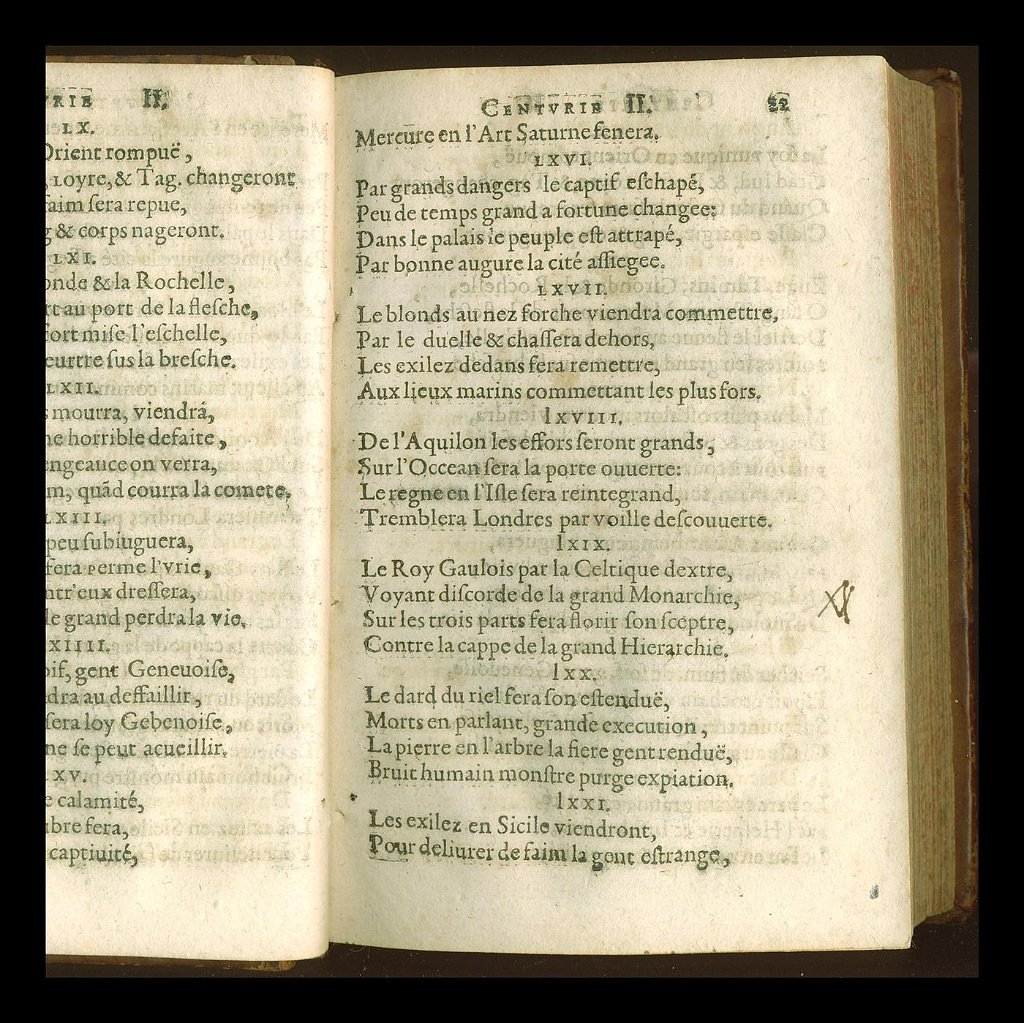 VRIE II.
LX.
Orient rompuë,
, Loyre, & Tag. changeront
faim ſera repue,
g & corps nageront.
LXI.
onde & la Rochelle,
rt au port de la fleſche,
fort miſe l'eſchelle,
eurtre ſus la breſche.
LXII.
s mourra, viendrá,
ne horrible defaite,
engeauce on verra,
m, quãd courra la comete.
LXIII.
peu ſubiuguera,
fera perme l'vrie,
ntr'eux dreſſera,
le grand perdra la vie.
XIIII.
oif, gent Geneuoiſe,
dra au deffaillir,
ſera loy Gebenoiſe,
ne ſe peut acueillir.
XV.
e calamité,
bre fera,
captiuité,
CENTVRIE II. 22
Mercure en l'Art Saturne fenera.
LXVI.
Par grands dangers le captif eſchapé,
Peu de temps grand a fortune changee:
Dans le palais le peuple eſt attrapé,
Par bonne augure la cité aſſiegee.
LXVII.
Le blonds au nez forche viendra commettre,
Par le duelle & chaſſera dehors,
Les exilez dedans fera remettre,
Aux lieux marins commettant les plus fors.
lXVIII.
De l'Aquilon les effors ſeront grands,
Sur l'Occean ſera la porte ouuerte:
Le regne en l'Iſle ſera reintegrand,
Tremblera Londres par voille deſcouuerte.
lXIX.
Le Roy Gaulois par la Celtique dextre,
Voyant diſcorde de la grand Monarchie,
Sur les trois parts fera florir ſon ſceptre,
Contre la cappe de la grand Hierarchie.
lXX.
Le dard du riel fera ſon eſtenduë,
Morts en parlant, grande execution,
La pierre en l'arbre la fiere gent renduë,
Bruit humain monſtre purge expiation.
lXXI.
Les exilez en Sicile viendront,
Pour deliurer de faim la gent eſtrange,